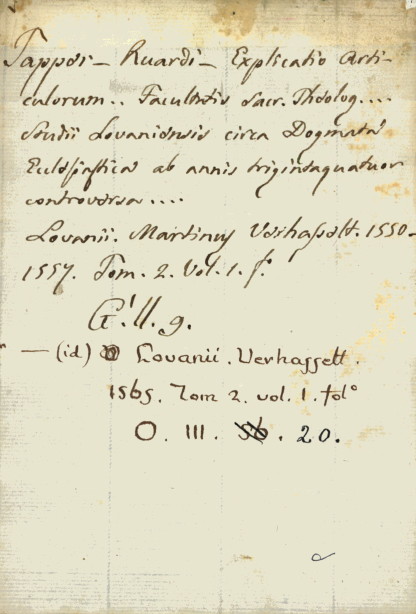 Tapper - Ruardi - Explicatio Arti-
culorum.. Facultatis Sacr. Theolog....
Studii Lovaniensis circa Dogmata
Ecclesiastica ab annis trigintaquatuor
controversa....
Lovanii. Martinus Verhasselt. 1550-
1557. Tom. 2. Vol. 1. f.
G. 11. 9.
— (id) Lovanii. Verhassett.
1565. Tom 2. vol. 1. fol°
O. III. 56. 20.